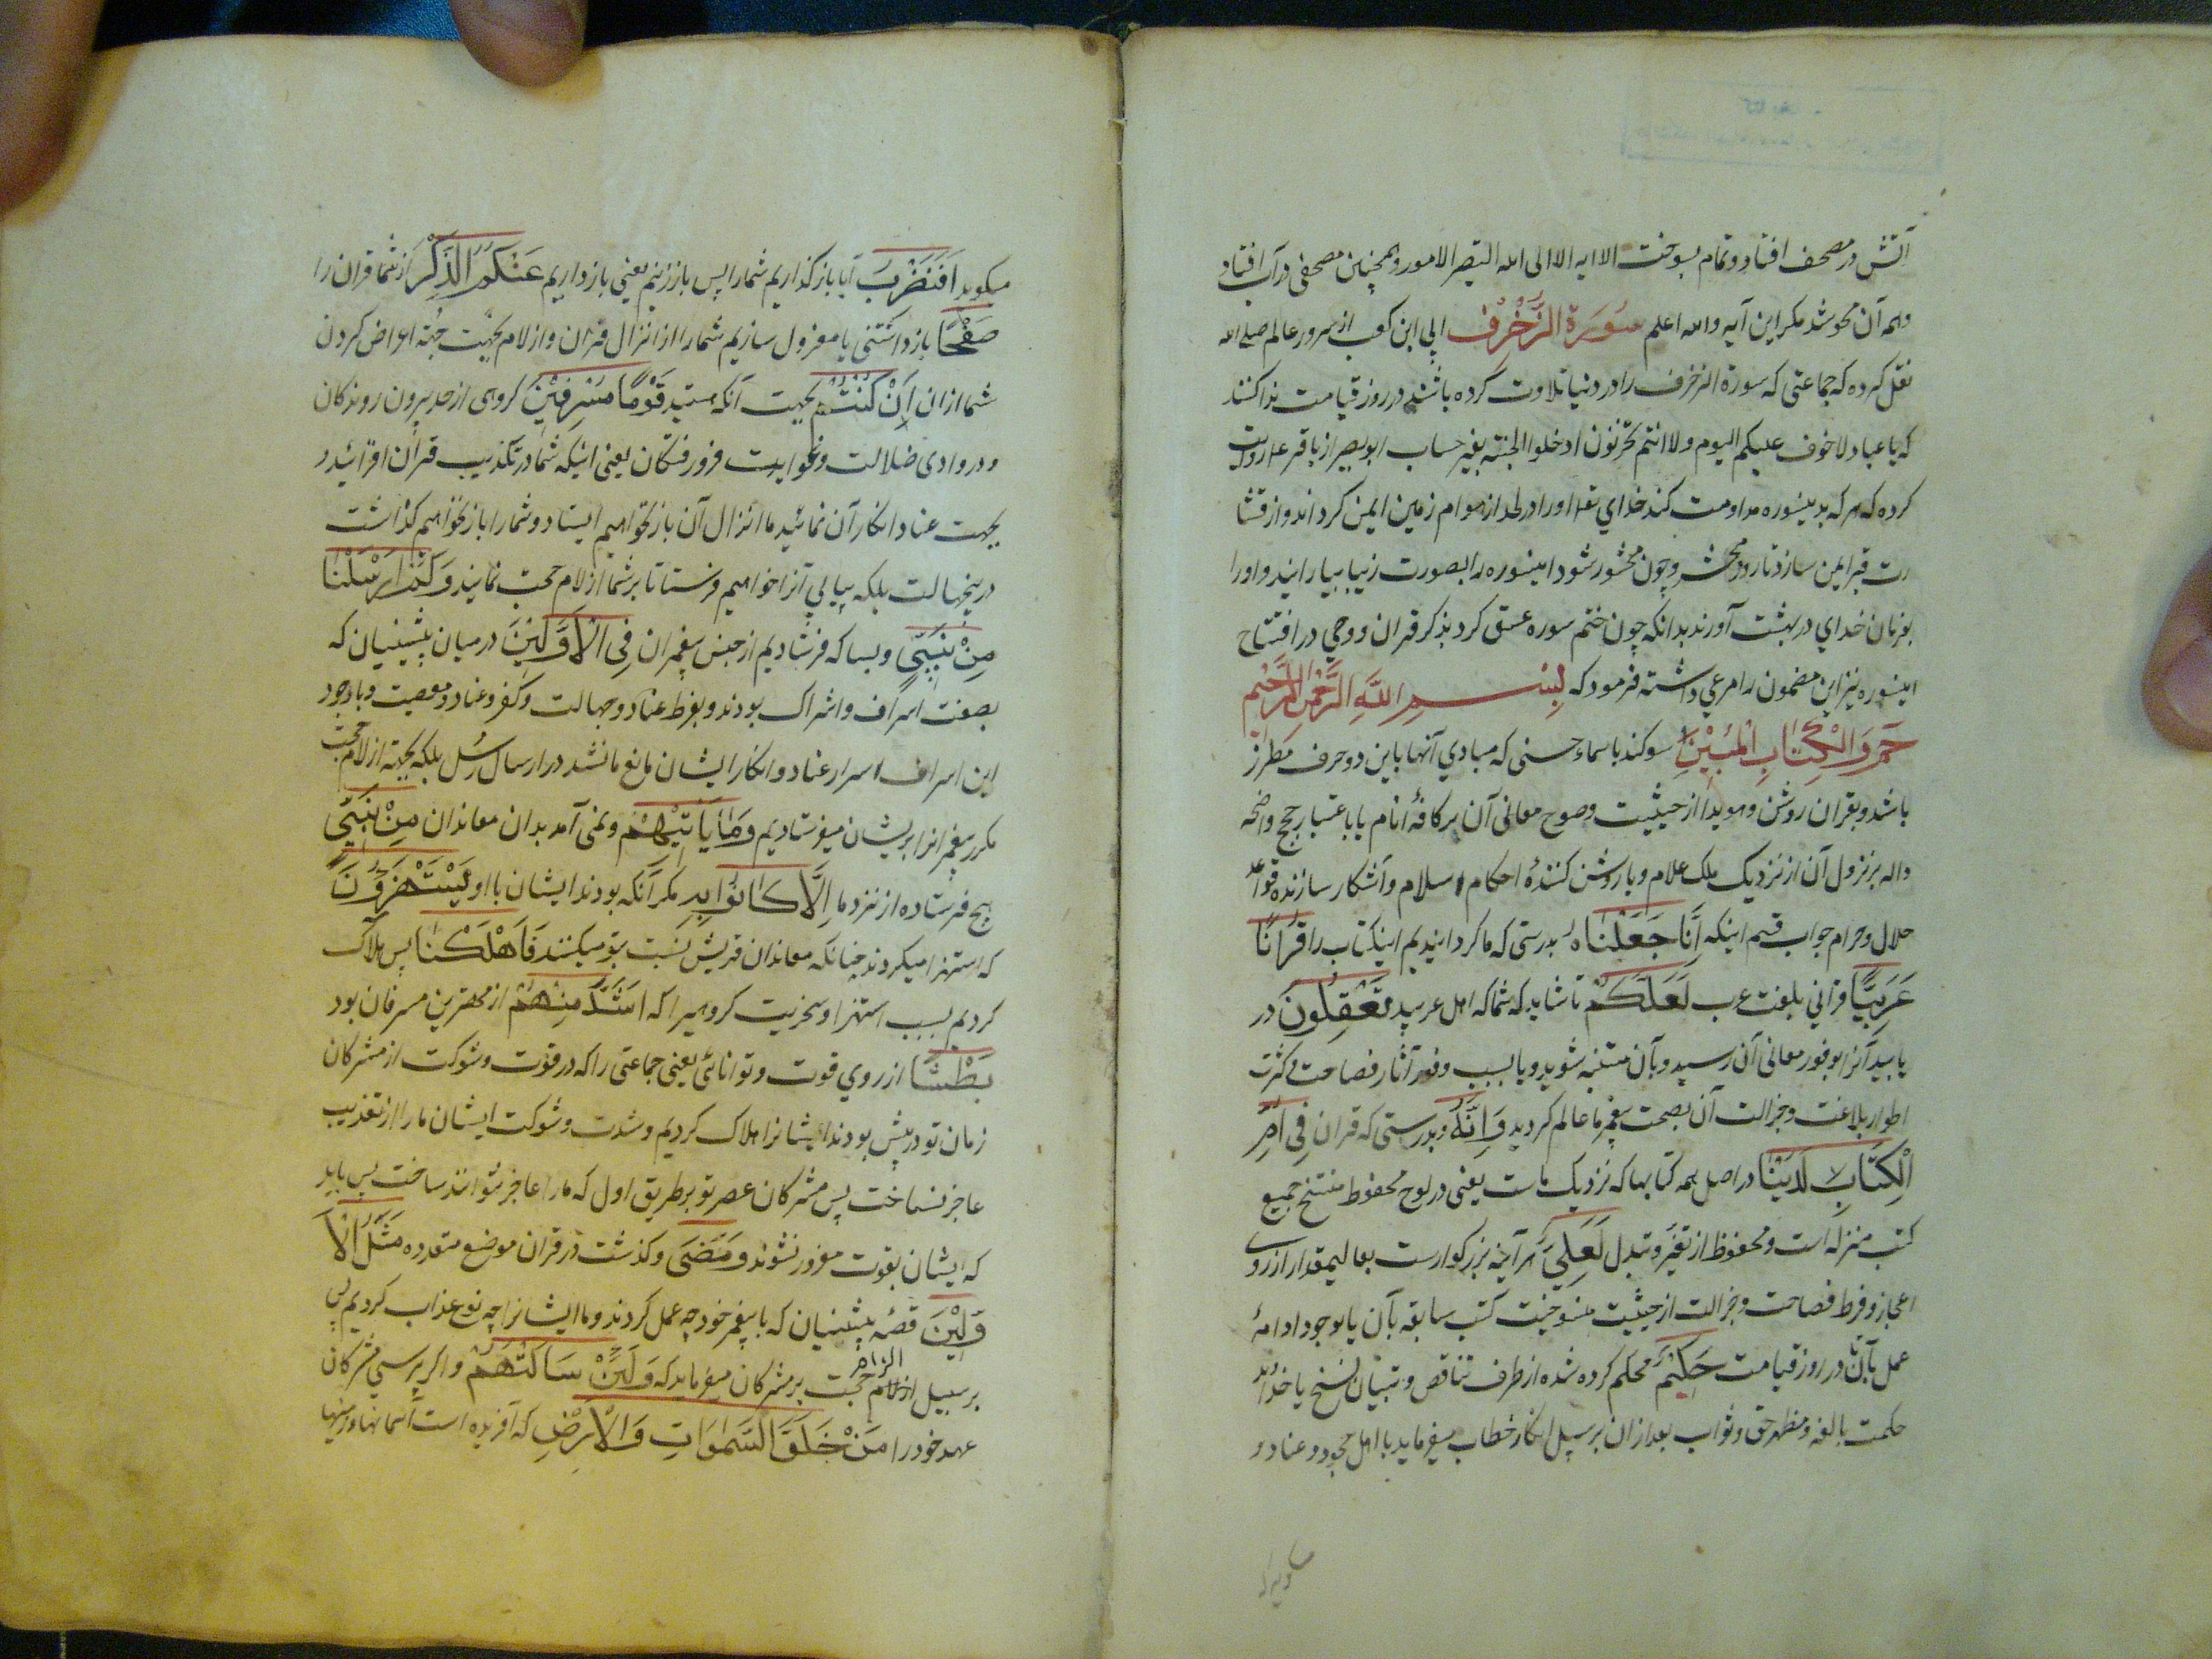 آتش در مصحف افتاد و تمام بسوخت الا ایه الا الی الله التصیر الامور و همچنین مصحفی در آب افتاد
و همه آن محو شد مکر این آیه والله اعلم سورة الزخرف ابی ابن کعب از سرور عالم صلی الله
نقل کرده که جماعتی که سورة الزخرف را در دنیا تلاوت کرده باشند در روز قیامت ندا کنند
که یا عباد لا خوف علیکم الیوم ولا انتم تحزنون ادخلوا الجنة بغیر حساب ابو بصیر از باقر ع روایت
کرده که هر که بدینسوره مداومت کند خدای تعا اورا در لحد از هوام زمین ایمن کرداند و از فشا
رت قبر ایمن سازد تا روز محشر و چون محشور شود اینسوره را بصورت زیبا بیارایند و اورا
بفرمان خدای در بهشت آورند بدانکه چون ختم سوره عسق کرد بذکر قران و وحی در افتتاح
اینسوره نیز این مضمون را مرعی داشته فرمود که بِسْمِ اللَّهِ الرَّحْمٰنِ الرَّحِیْمِ
حٰمٓ وَالْکِتٰابِ الْمُبِیْنِ سوکند باسماء حسنی که مبادی آنها باین دو حرف مطرز
باشد و بقران روشن و هویدا از حیثیت وضوح معانی آن بر کافهٔ انام یا باعتبار حجج واضحه
داله بر نزول آن از نزدیک ملک علام و یا روشن کنندهٔ احکام اسلام و آشکار سازنده قواعد
حلال و حرام جواب قسم اینکه اِنَّا جَعَلْنٰاهُ بدرستی که ما کردانیدیم اینکتاب را قُرْاٰنًا
عَرَبِیًّا قرآنی بلغت عرب لَعَلَّکُمْ تا شاید که شما که اهل عربید تَعْقِلُونَ در
یابید آنرا بوفور معانی آن رسید و بآن متنبه شوید و یا بسبب وفور آثار فصاحت و کثرت
اطوار بلاغت و جزالت آن بصحت پیغمبر ما عالم کردید وَ اِنَّهُ و بدرستی که قران فِی اُمِّ
الْکِتَابِ لَدَیْنٰا در اصل همه کتابها که نزدیک ماست یعنی در لوح محفوظ منتسخ جمیع
کتب منزله است و محفوظ از تغیر و تبدل لَعَلِیٌّ هر آینه بزرکوارست بعالیمقدار از روی
اعجاز و فرط فصاحت و جزالت از حیثیت منسوخیت کتب سابقه بآن یا بوجود ادامهٔ
عمل بآن در روز قیامت حَکِیْمٌ محکم کرده شده از طرف تناقص و تبیان نسخ یا خداوند
حکمت بالغه و مظهر حق و ثواب بعد از ان بر سبیل انکار خطاب میفرماید با اهل جحود و عناد و
میکوید که
میکوید اَفَنَضْرِبُ آیا باز کذاریم شما را پس باز زنیم یعنی باز داریم عَنْکُمُ الذِّکْرَ از شما قران را
صَفْحًا باز داشتنی یا معزول سازیم شما را از انزال قران و از لام بجهت جهة اعراض کردن
شما از ان اَنْ کُنْتُمْ بجهت آنکه هستید قَوْمًا مُسْرِفِیْنَ کروهی از حد بیرون روندکان
و در وادی ضلالت و غوایت فرو رفتکان یعنی اینکه شما در تکذیب قران افزائید و
بجهت عناد انکار آن نمائید ما انزال آن باز نخواهیم ایستاد و شما را باز نخواهیم کذاشت
در ینجهالت بلکه پیاپی آنرا خواهیم فرستا تا بر شما از لام حجت نمایند وَ کَمْ اَرْسَلْنٰا
مِنْ نَبِیٍّ و بسا که فرستادیم از جنس پیغمبران فِی الْاَوَّلِیْنَ در میان پیشینیان که
بصفت اسراف و اشراک بودند و بفرط عناد و جهالت و کفر و عناد و معصیت و با وجود
این اسراف اسرار عناد و انکار ایشان مانع ما نشد در ارسال رسل بلکه بجهته از لام حجت
مکرر پیغمبرانرا بریشان میفرستادیم وَ مٰا یَاْتِیْهِمْ و نمی آمد بدان معاندان مِنْ نَبِیٍّ
هیچ فرستاده از نزد ما اِلَّا کٰانُوْا بِهِ مکر آنکه بودند ایشان با او یَسْتَهْزِؤُنَ
که استهزا میکردند چنانکه معاندان قریش نسبت بتو میکنند فَاَهْلَکْنٰا پس هلاک
کردیم بسبب استهزا و سخریت کروهیرا که اَشَدَّ مِنْهُمْ از مهترین مسرفان بود
بَطْشًا از روی قوت و توانائی یعنی جماعتی را که در قوت و شوکت از مشرکان
زمان تو در پیش بودند ایشانرا هلاک کردیم و شدت و شوکت ایشان ما را از تعذیب
عاجز نساخت پس مشرکان عصر تو بر طریق اول که ما را عاجز نتوانند ساخت پس باید
که ایشان بقوت مغرور نشوند وَ مَضٰی و کذشت در قران موضع متعدده مَثَلُ الْاَ
وَّلِیْنَ قصهٔ پیشینیان که با پیغمبر خود چه عمل کردند و ما ایشانرا چه نوع عذاب کردیم پس
بر سبیل الزام حجت بر مشرکان میفرماید که وَ لَئِنْ سَاَلْتَهُمْ و اکر پرسی مشرکان
عهد خود را مَنْ خَلَقَ السَّمٰوَاتِ وَالْاَرْضِ که آفریده است آسمانها و زمینها